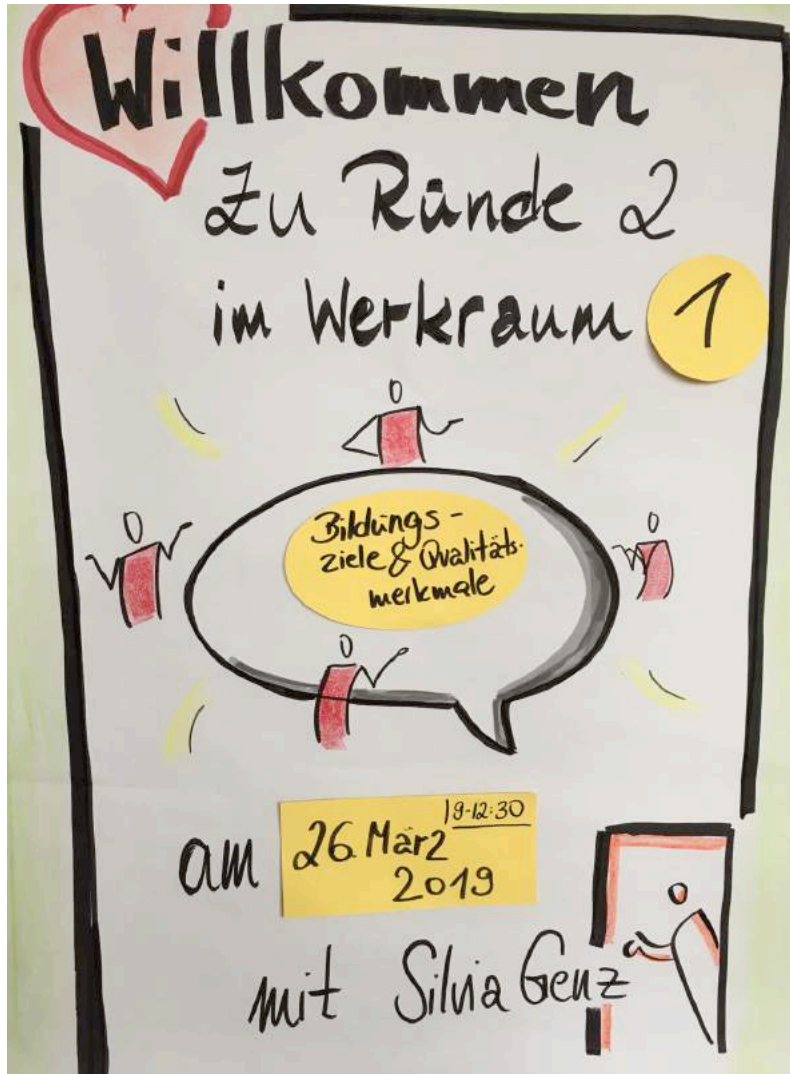 Willkommen
Zu Runde 2
im Werkraum 1
Bildungs-
ziele & Qualitäts-
merkmale
9-12:30
am 26. März
2019
mit Silvia Genz